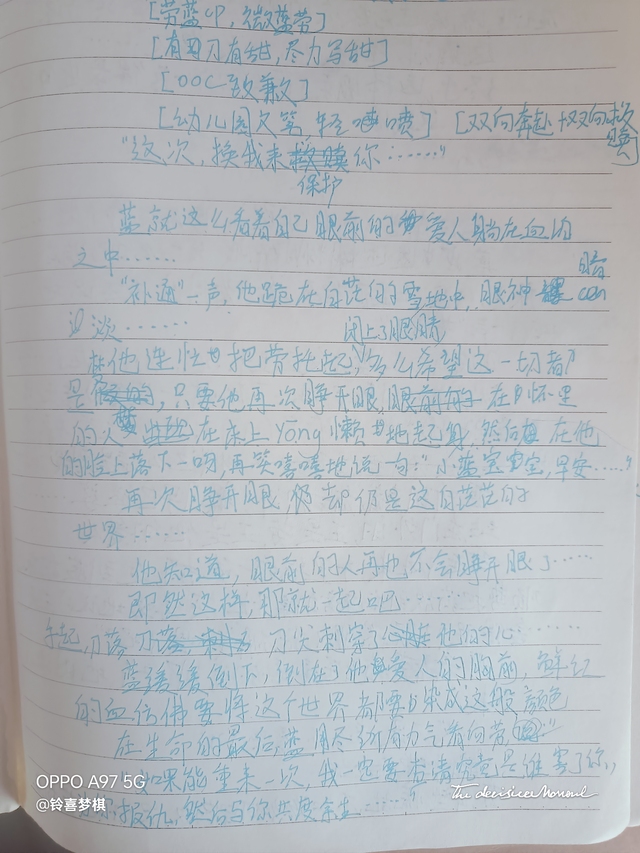 [劳蓝cp，微蓝劳]
[有刀有甜，尽力写甜]
[OOC致歉]
[幼儿园文笔，轻喷喷] [双向奔赴+双向救赎]
"这次，换我来保护你……"
蓝就这么看着自己眼前的爱人躺在血泊
之中……
"补通"一声，他跪在白茫茫的雪地中，眼神暗
淡……
他连忙把劳托起，闭上了眼睛，多么希望这一切都
是，只要他再次睁开眼，在怀里
的人在床上yōng懒地起身，然后在他
的脸上落下一吻，再笑嘻嘻地说一句："小蓝宝宝，早安……"
再次睁开眼，却仍是这白茫茫的
世界……
他知道，眼前的人再也不会睁开眼了……
即然这样，那就一起吧……
手起，刀落，刀尖刺穿了他的心……
蓝缓缓倒下，倒在了他爱人的胸前，鲜红
的血仿佛要将这个世界都要染成这般颜色
在生命的最后，蓝用尽所有力气看向劳
如果能重来一次，我一定要查清究竟是谁害了你，
你报仇，然后与你共度余生……
OPPO A97 5G
@铃喜梦棋
The decisive Moment